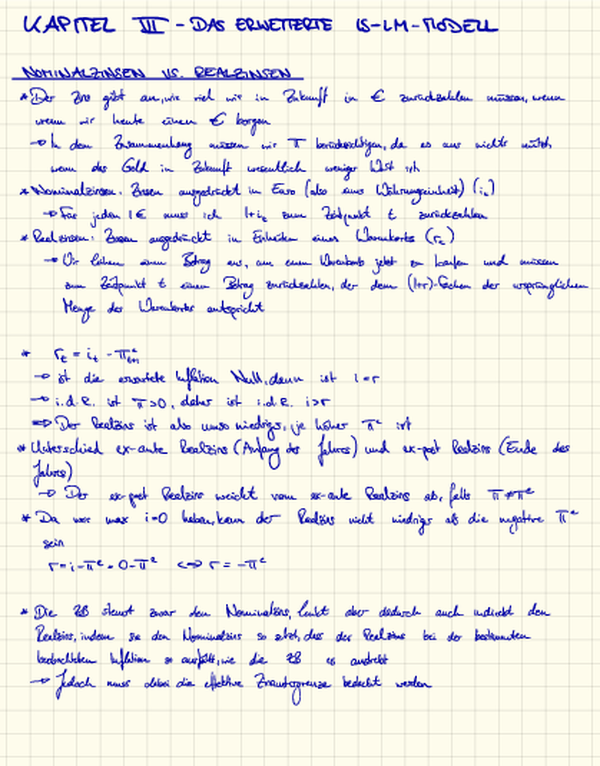 KAPITEL III - DAS ERWEITERTE IS-LM-MODELL
NOMINALZINSEN VS. REALZINSEN
* Der Zins gibt an, wie viel wir in Zukunft in € zurückzahlen müssen, wenn
wenn wir heute einen € borgen
→ In dem Zusammenhang müssen wir π berücksichtigen, da es uns nichts nützt,
wenn das Geld in Zukunft wesentlich weniger Wert ist
* Nominalzinsen: Zinsen ausgedrückt in Euro (also eine Währungseinheit) (i_t)
→ Für jeden 1€ muss ich 1+i_t zum Zeitpunkt t zurückzahlen
* Realzinsen: Zinsen ausgedrückt in Einheiten eines Warenkorbs (r_t)
→ Wir leihen einen Betrag aus, um einen Warenkorb jetzt zu kaufen und müssen
zum Zeitpunkt t einen Betrag zurückzahlen, der dem (1+r)-fachen der ursprünglichen
Menge des Warenkorbes entspricht
* r_t = i_t - π^e_{t+1}
→ ist die erwartete Inflation Null, dann ist i=r
→ i.d.R. ist π>0, daher ist i.d.R. i>r
⇒ Der Realzins ist also umso niedriger, je höher π^e ist
* Unterschied ex-ante Realzins (Anfang des Jahres) und ex-post Realzins (Ende des
Jahres)
→ Der ex-post Realzins weicht vom ex-ante Realzins ab, falls π≠π^e
* Da wir max i=0 haben, kann der Realzins nicht niedriger als die negative π^e
sein
r=i-π^e=0-π^e ⇔ r=-π^e
* Die ZB steuert zwar den Nominalzins, lenkt aber dadurch auch indirekt den
Realzins, indem sie den Nominalzins so setzt, dass der Realzins bei der
beobachteten Inflation so ausfällt, wie die ZB es anstrebt
→ Jedoch muss dabei die effektive Zinsuntergrenze bedacht werden